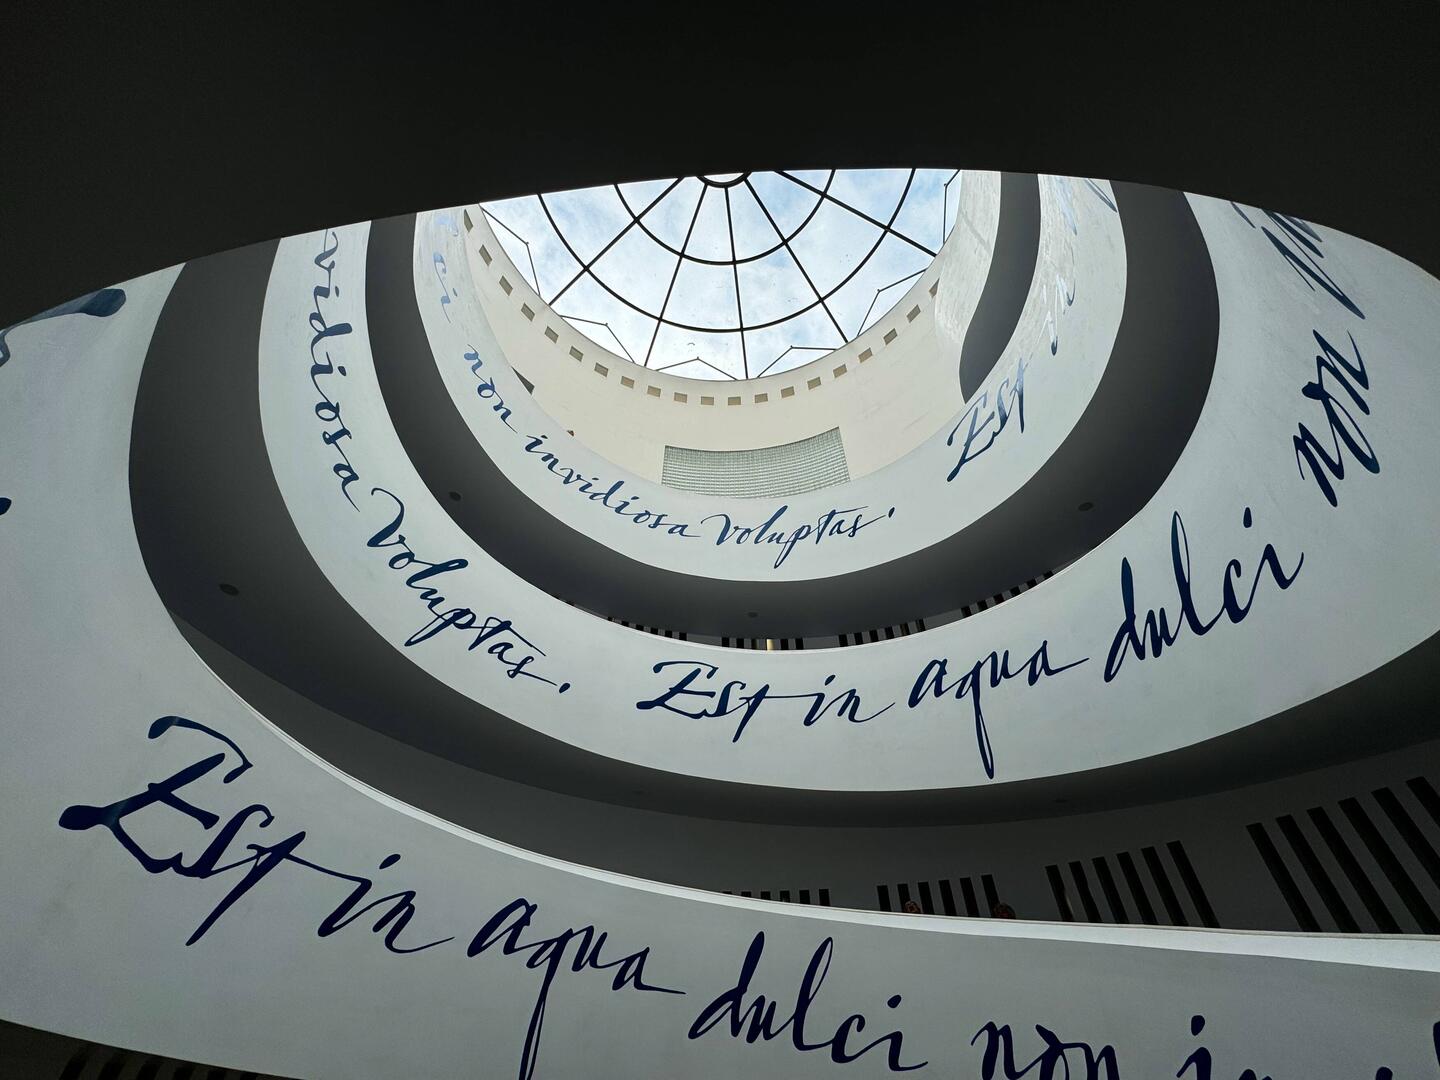 ci non invidiosa voluptas.
Est in
vidiosa voluptas. Est in aqua dulci non in
Est in aqua dulci non in